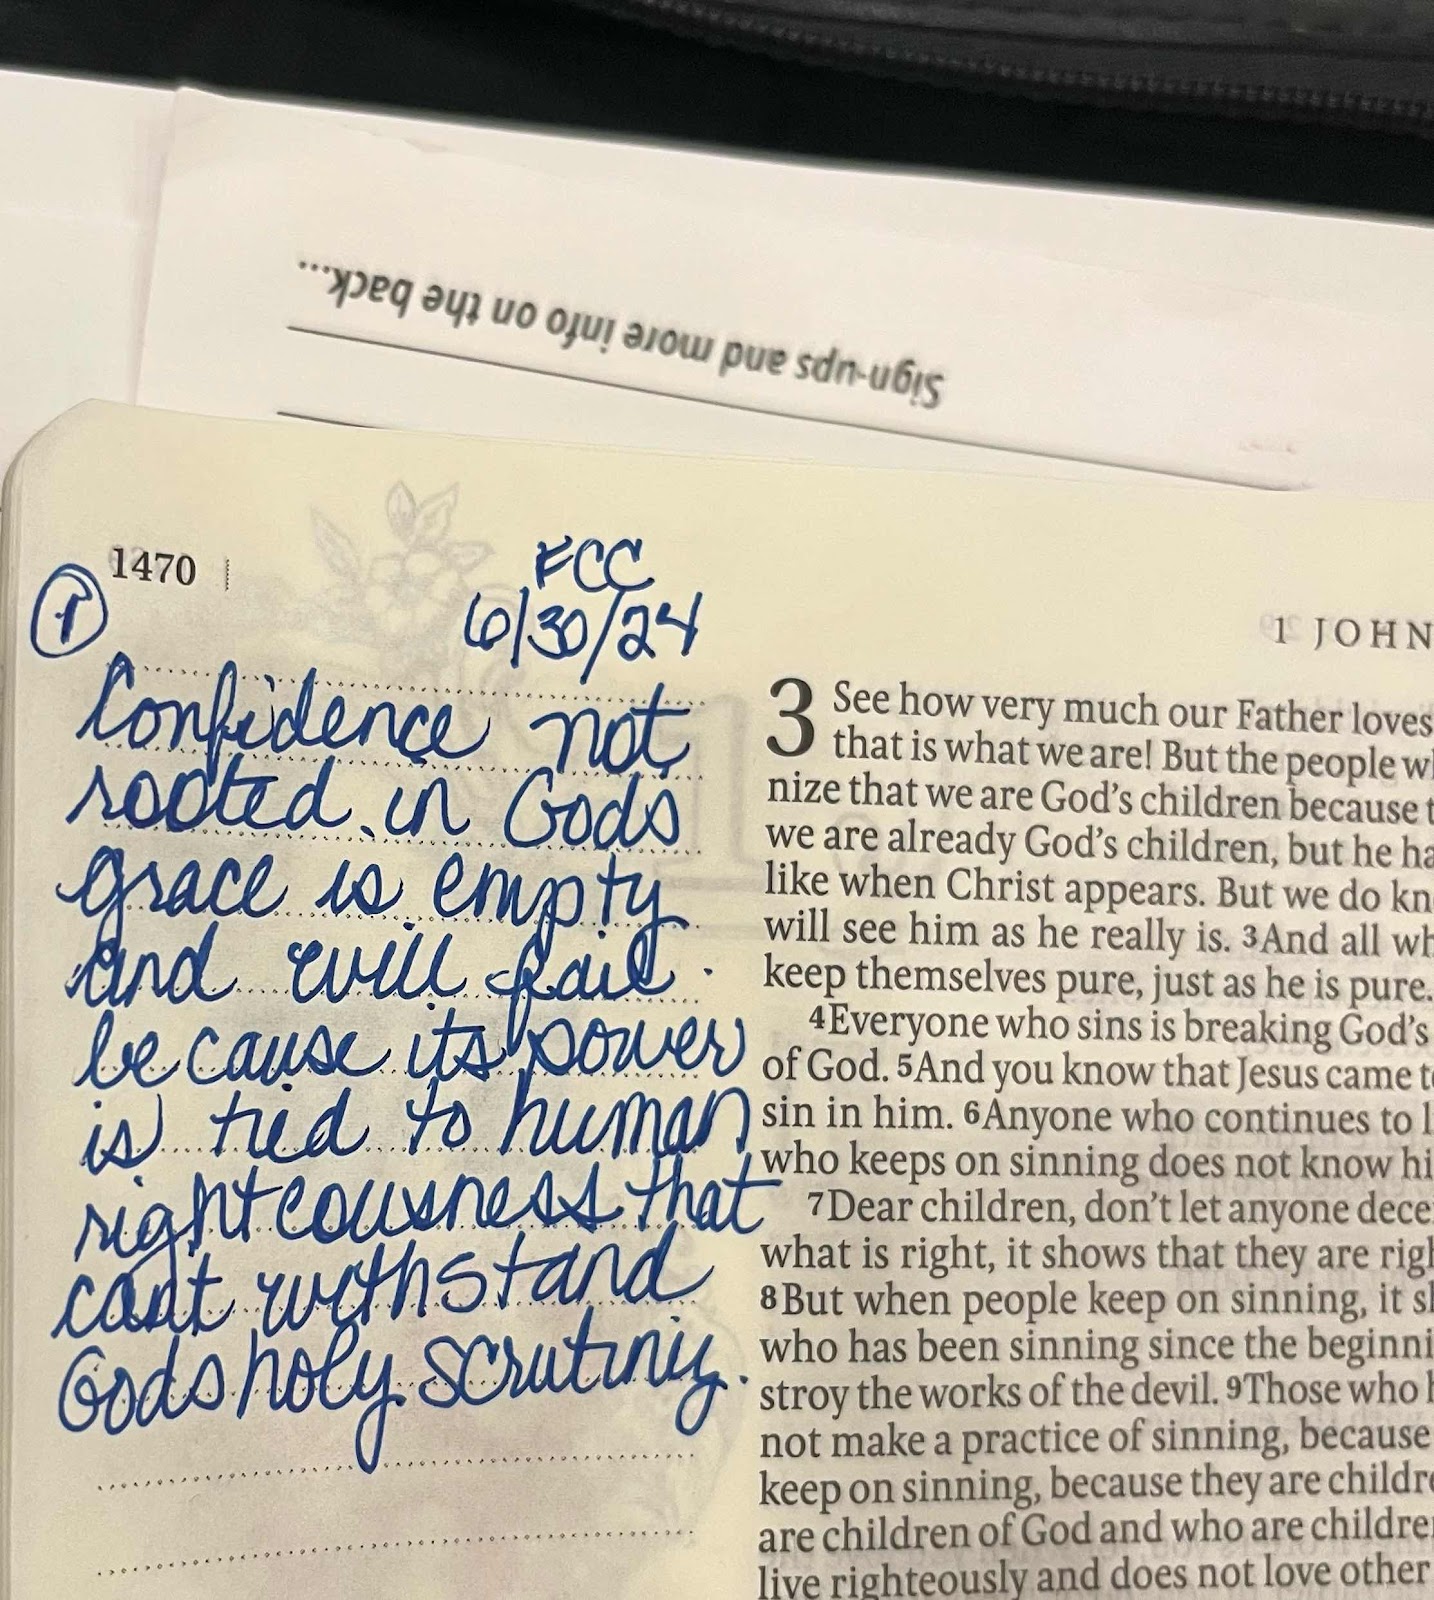 Sign-ups and more info on the back...
1470
FCC
6/30/24
1
1 JOHN
Confidence not
rooted in Gods
grace is empty
and will fail.
because its power
is tied to human
righteousness that
cant withstand
Gods holy scrutiny.
3 See how very much our Father loves
that is what we are! But the people wh
nize that we are God's children because t
we are already God's children, but he ha
like when Christ appears. But we do kn
will see him as he really is. 3And all wh
keep themselves pure, just as he is pure.
4Everyone who sins is breaking God's
of God. 5And you know that Jesus came t
sin in him. 6Anyone who continues to l
who keeps on sinning does not know hi
7Dear children, don't let anyone dece
what is right, it shows that they are righ
8But when people keep on sinning, it sh
who has been sinning since the beginni
stroy the works of the devil. 9Those who h
not make a practice of sinning, because
keep on sinning, because they are childre
are children of God and who are childre
live righteously and does not love other